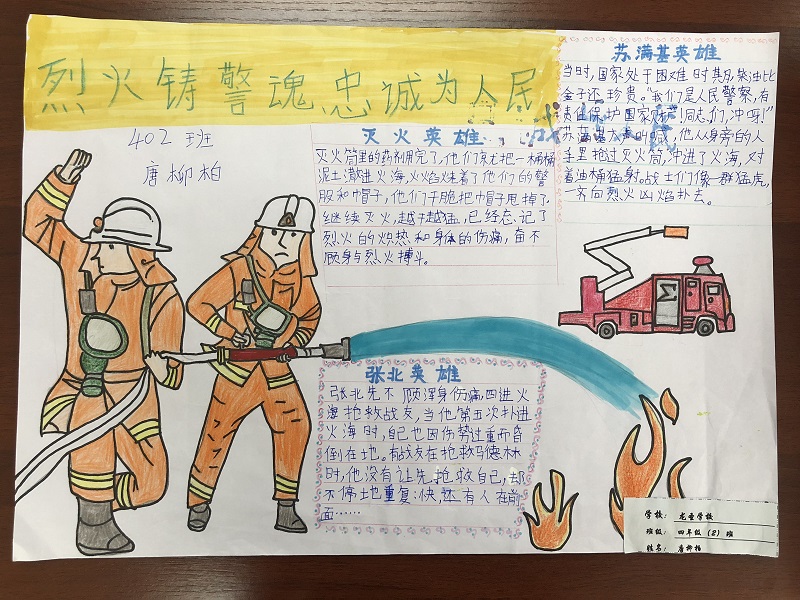 烈火铸警魂 忠诚为人民
402班
唐柳柏
灭火英雄
灭火筒里的药剂用完了,他们就把一桶桶
泥土撒进火海,火焰烧着了他们的警
服和帽子,他们干脆把帽子甩掉了
继续灭火,越干越猛,已经忘记了
烈火的炽热和身体的伤痛,奋不
顾身与烈火搏斗。
苏满基英雄
当时,国家处于困难时其别,柴油比
金子还珍贵。"我们是人民警察,有
责任保护国家财产!同志们,冲呀!"
他从身旁的人
手里抢过灭火筒,冲进了火海,对
着油桶猛射。战士们像一群猛虎,
一齐向烈火凶焰扑去。
张北英雄
张北先不顾浑身伤痛,四进火
海抢救战友,当他第五次扑进
火海时,自己也因伤势过重而昏
倒在地。有战友在抢救马德林
时,他没有让先抢救自己,却
不停地重复:快,还有人在前
面……
学校: 龙圣学校
班级: 四年级(2)班
姓名: 唐柳柏